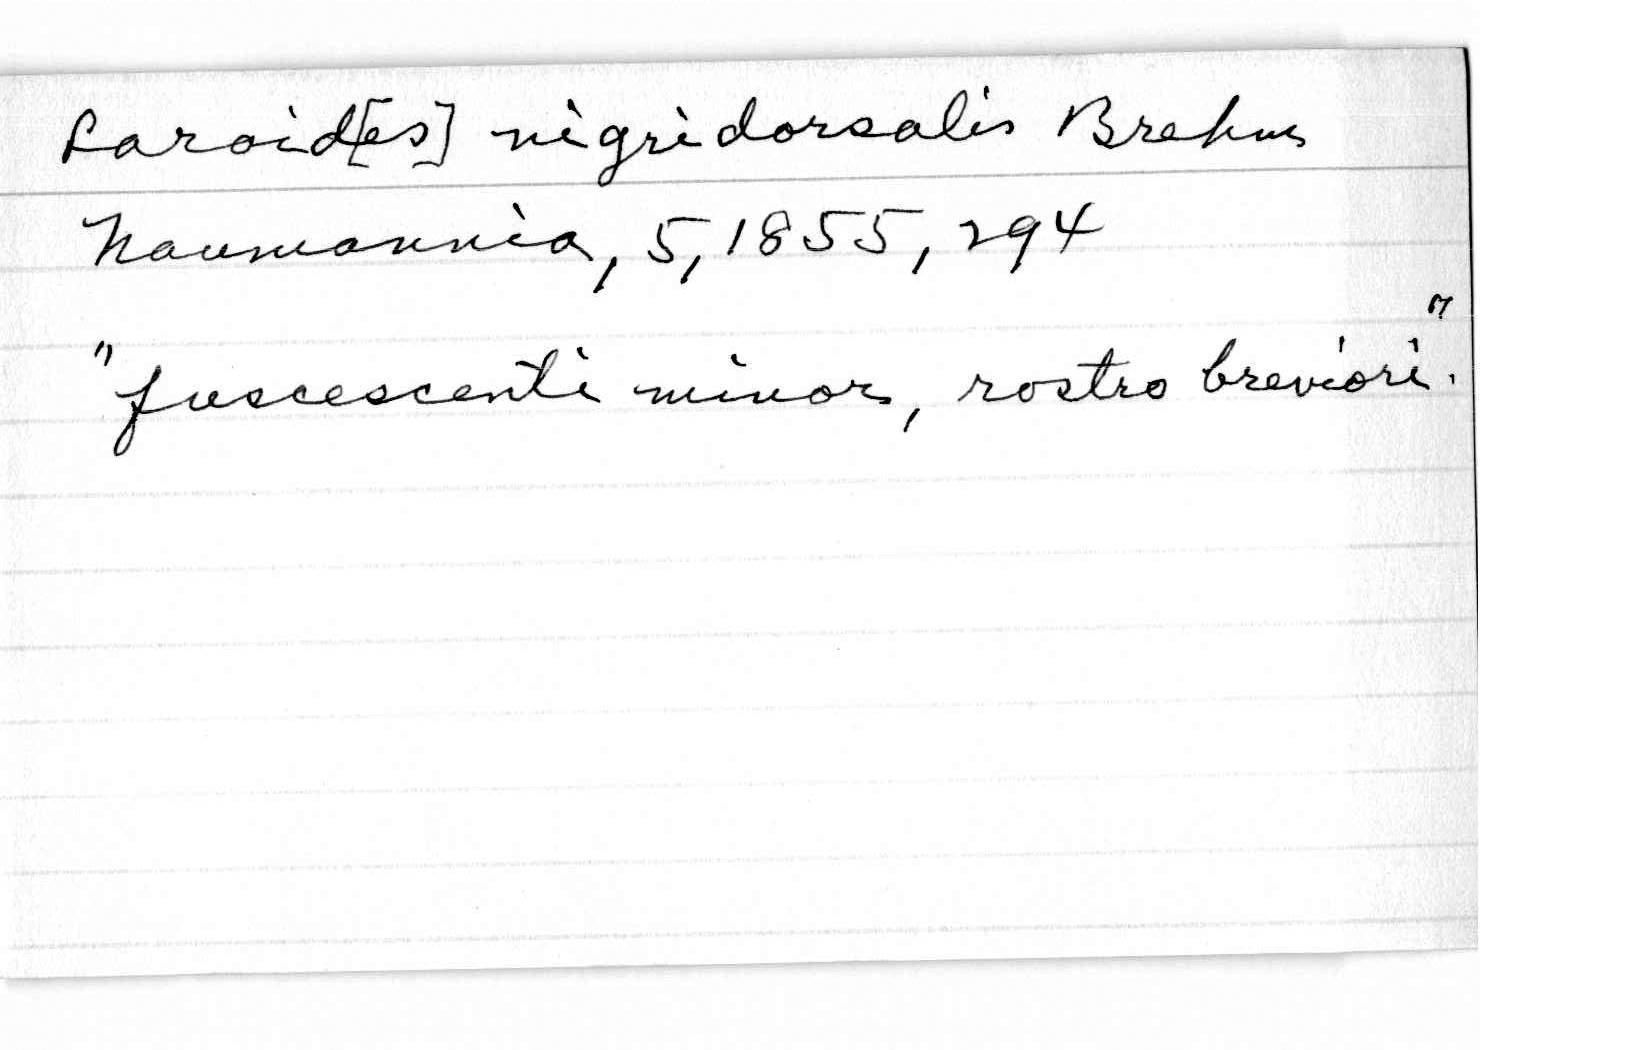 Laroid[es] nigridorsalis Brehm
Naumannia, 5, 1855, 294
"fuscescenti minor, rostro breviori".